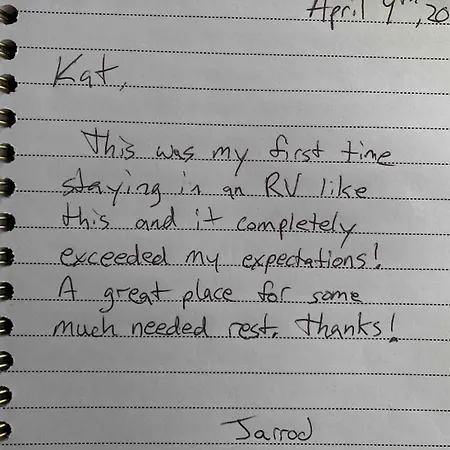 April 9th, 20
Kat,
This was my first time
staying in an RV like
this and it completely
exceeded my expectations!
A great place for some
much needed rest. Thanks!
Jarrod